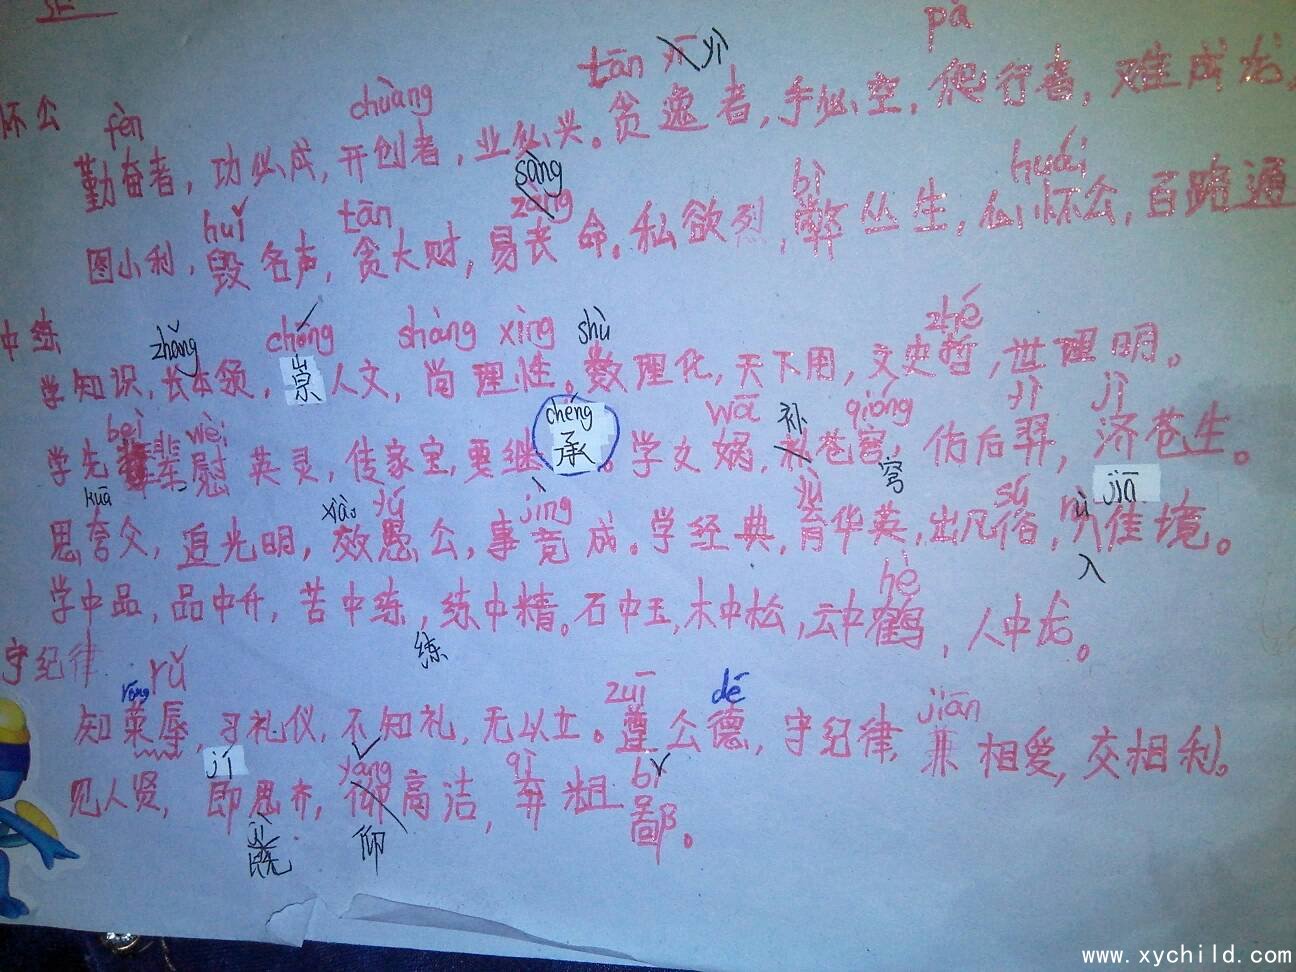 怀公
fèn chuàng tān yī yì pá
勤奋者，功必成，开创者，业必兴。贪逸者，手必空，爬行者，难成龙，
huǐ tān sàng zàng bì huái
图小利，毁名声，贪大财，易丧命。私欲烈，弊丛生，心怀公，百路通
中练
zhǎng chóng shàng xìng shù zhé
学知识，长本领，崇人文，尚理性。数理化，天下用，文史哲，世理明。
bèi wèi chéng wā 补 qióng yì jì
学先辈，慰英灵，传家宝，要继承。学女娲，补苍穹，仿后羿，济苍生。
kuā xiào yú jìng yù 穹 sú jiā
思夸父，追光明，效愚公，事竟成。学经典，育华英，出凡俗，入佳境。
入
hè
学中品，品中升，苦中练，练中精。石中玉，木中松，云中鹤，人中龙。
练
守纪律
róng rǔ zuī dé jiān
知荣辱，习礼仪，不知礼，无以立。遵公德，守纪律，兼相爱，交相利。
jí yǎng qì bǐ
见人贤，即思齐，仰高洁，弃粗鄙。
既 仰
www.xychild.com